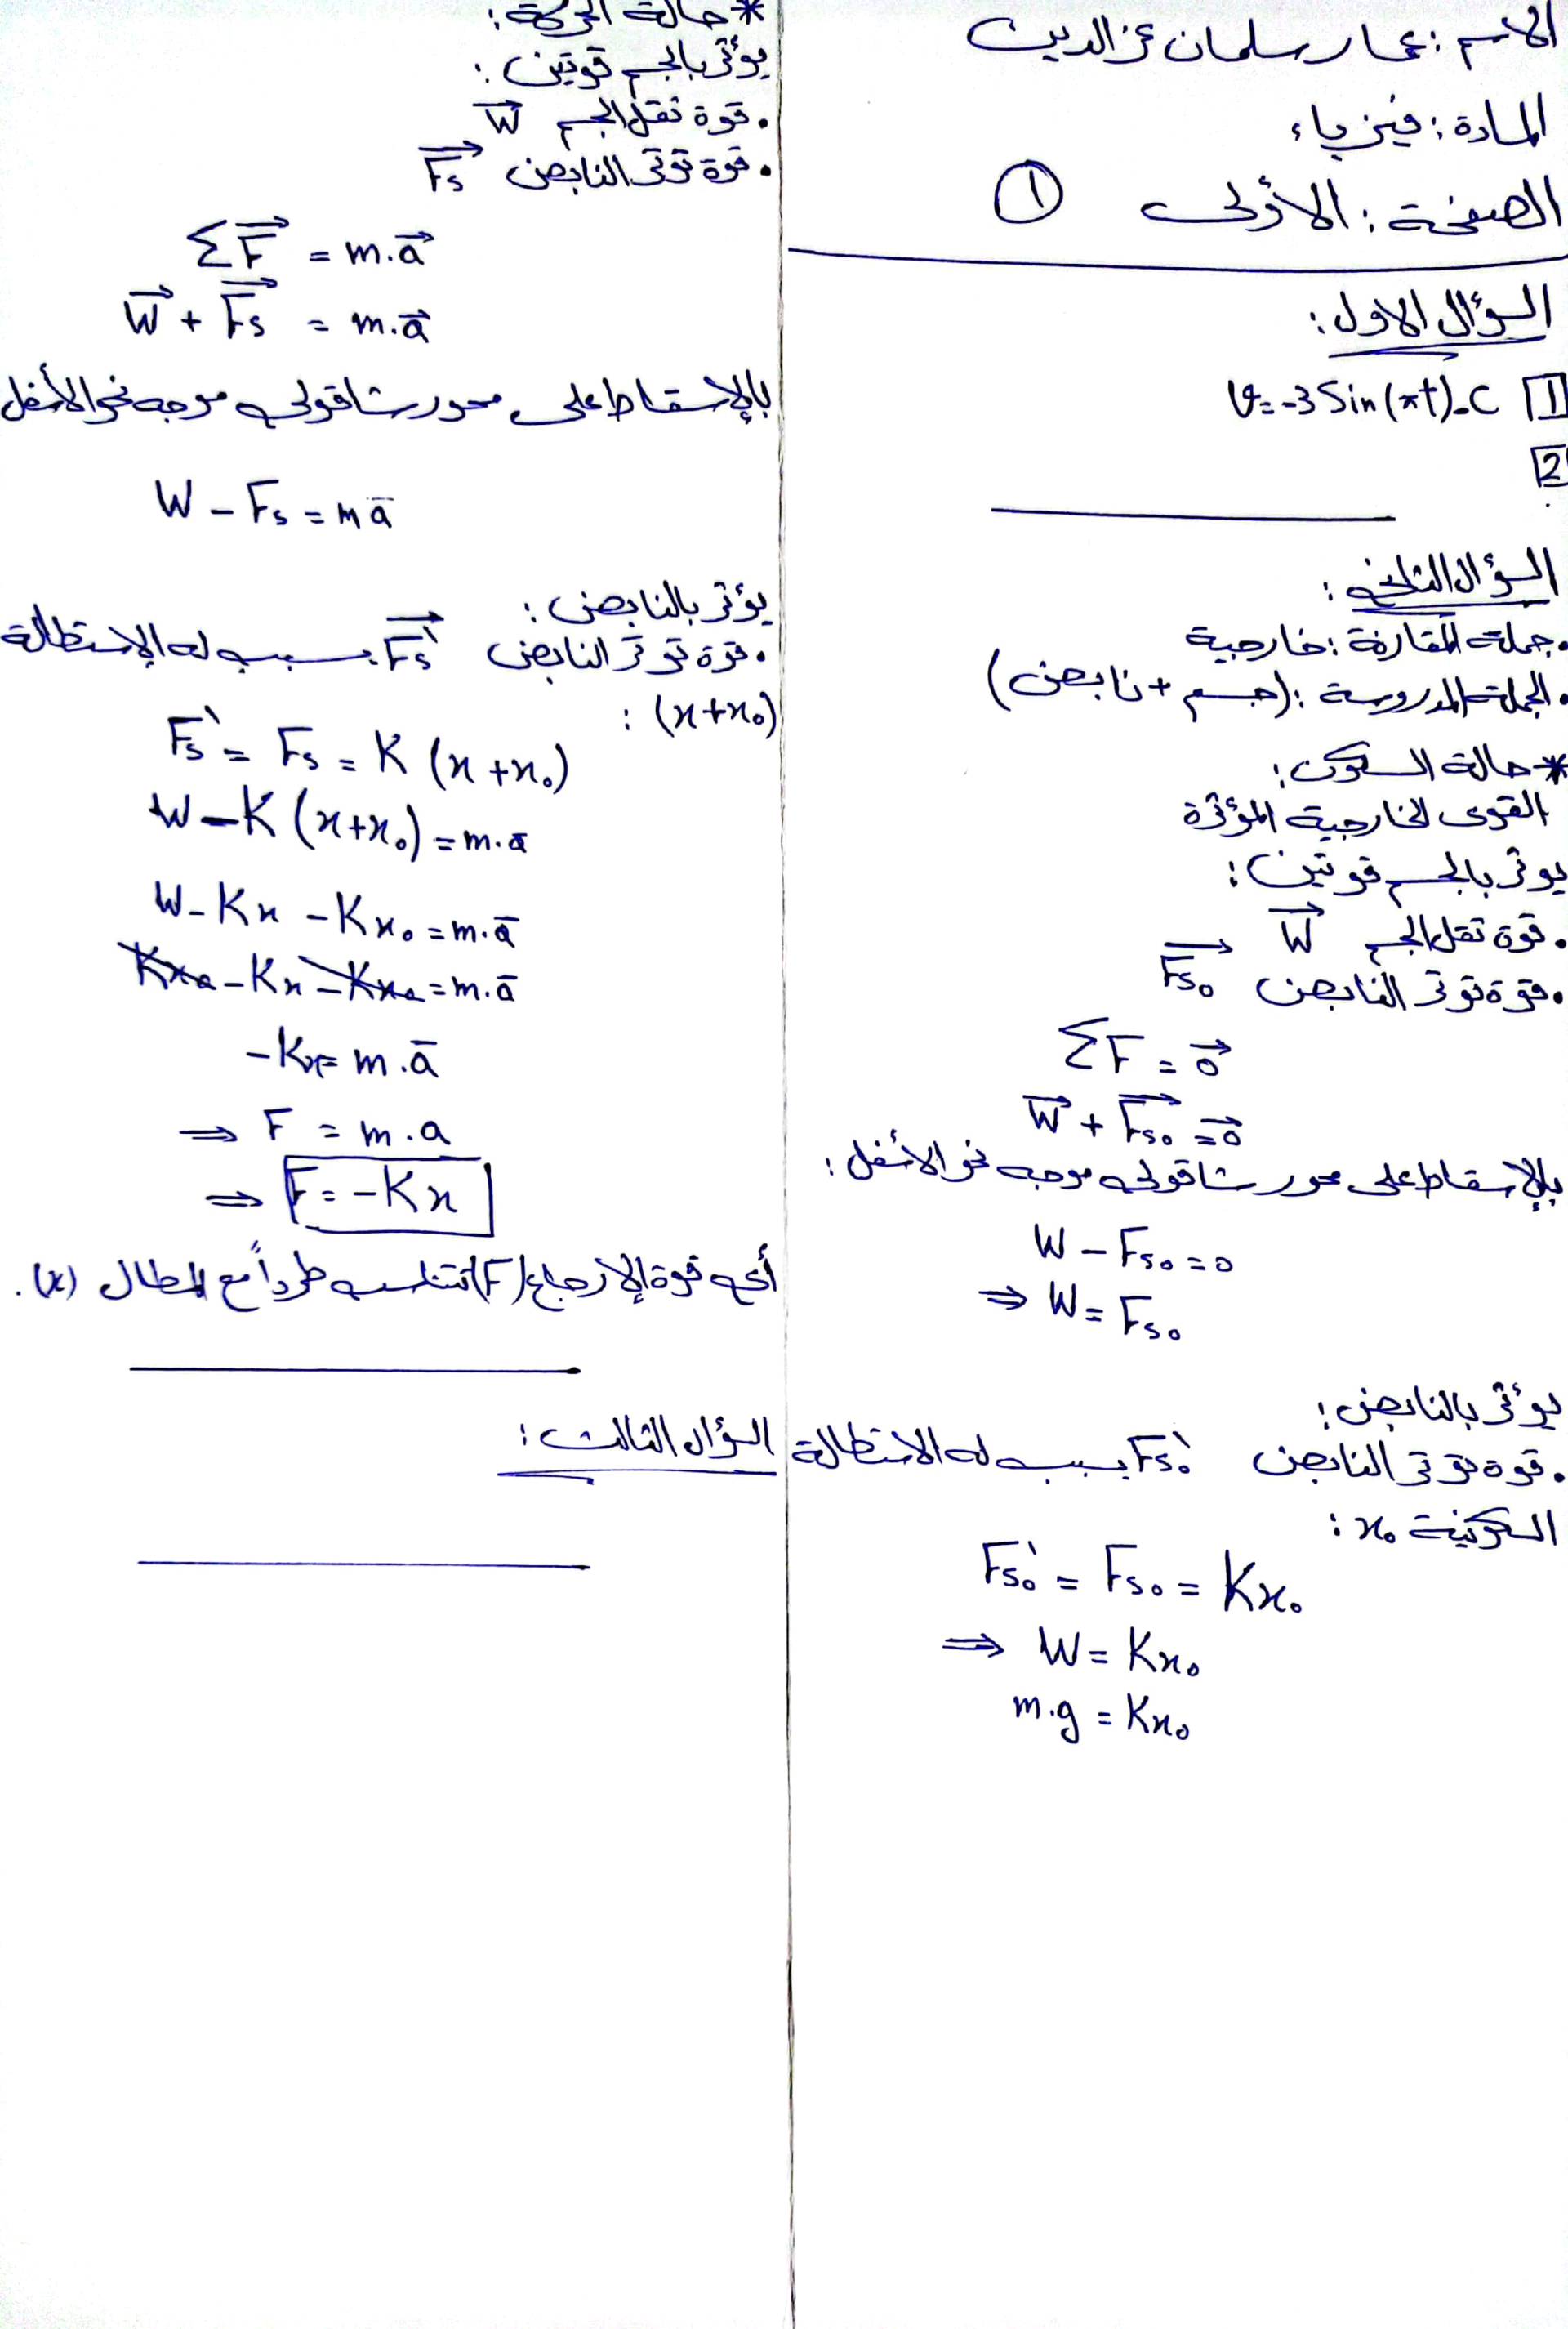 الاسم : عمار سلمان عز الدين
المادة : فيزياء
الصفحة : الأولى ①
السؤال الاول :
1 v = -3 Sin(πt) - C
2
السؤال الثاني :
. جملة المقارنة : خارجية
. الجملة المدروسة : (جسم + نابض)
* حالة السكون :
القوى الخارجية المؤثرة
يؤثر بالجسم قوتين :
. قوة ثقل الجسم W⃗
. قوة توتر النابض Fs₀⃗
ΣF = 0⃗
W⃗ + Fs₀⃗ = 0⃗
بالإسقاط على محور شاقولي موجه نحو الأسفل :
W - Fs₀ = 0
⇒ W = Fs₀
يؤثر بالنابض :
. قوة توتر النابض Fs₀` يسبب له الاستطالة
السكونية x₀ :
Fs₀` = Fs₀ = Kx₀
⇒ W = Kx₀
m.g = Kx₀
* حالة الحركة :
يؤثر بالجسم قوتين :
. قوة ثقل الجسم W⃗
. قوة توتر النابض Fs⃗
ΣF⃗ = m.a⃗
W⃗ + Fs⃗ = m.a⃗
بالإسقاط على محور شاقولي موجه نحو الأسفل
W - Fs = m a̅
يؤثر بالنابض :
. قوة توتر النابض Fs`⃗ يسبب له الإستطالة
(x+x₀) :
Fs` = Fs = K (x + x₀)
W - K (x+x₀) = m.a̅
W - Kx - Kx₀ = m.a̅
Kx₀ - Kx - Kx₀ = m.a̅
-Kx = m.a̅
⇒ F = m.a
⇒ F = -Kx
أي قوة الإرجاع (F) تتناسب طرداً مع المطال (x).
السؤال الثالث :